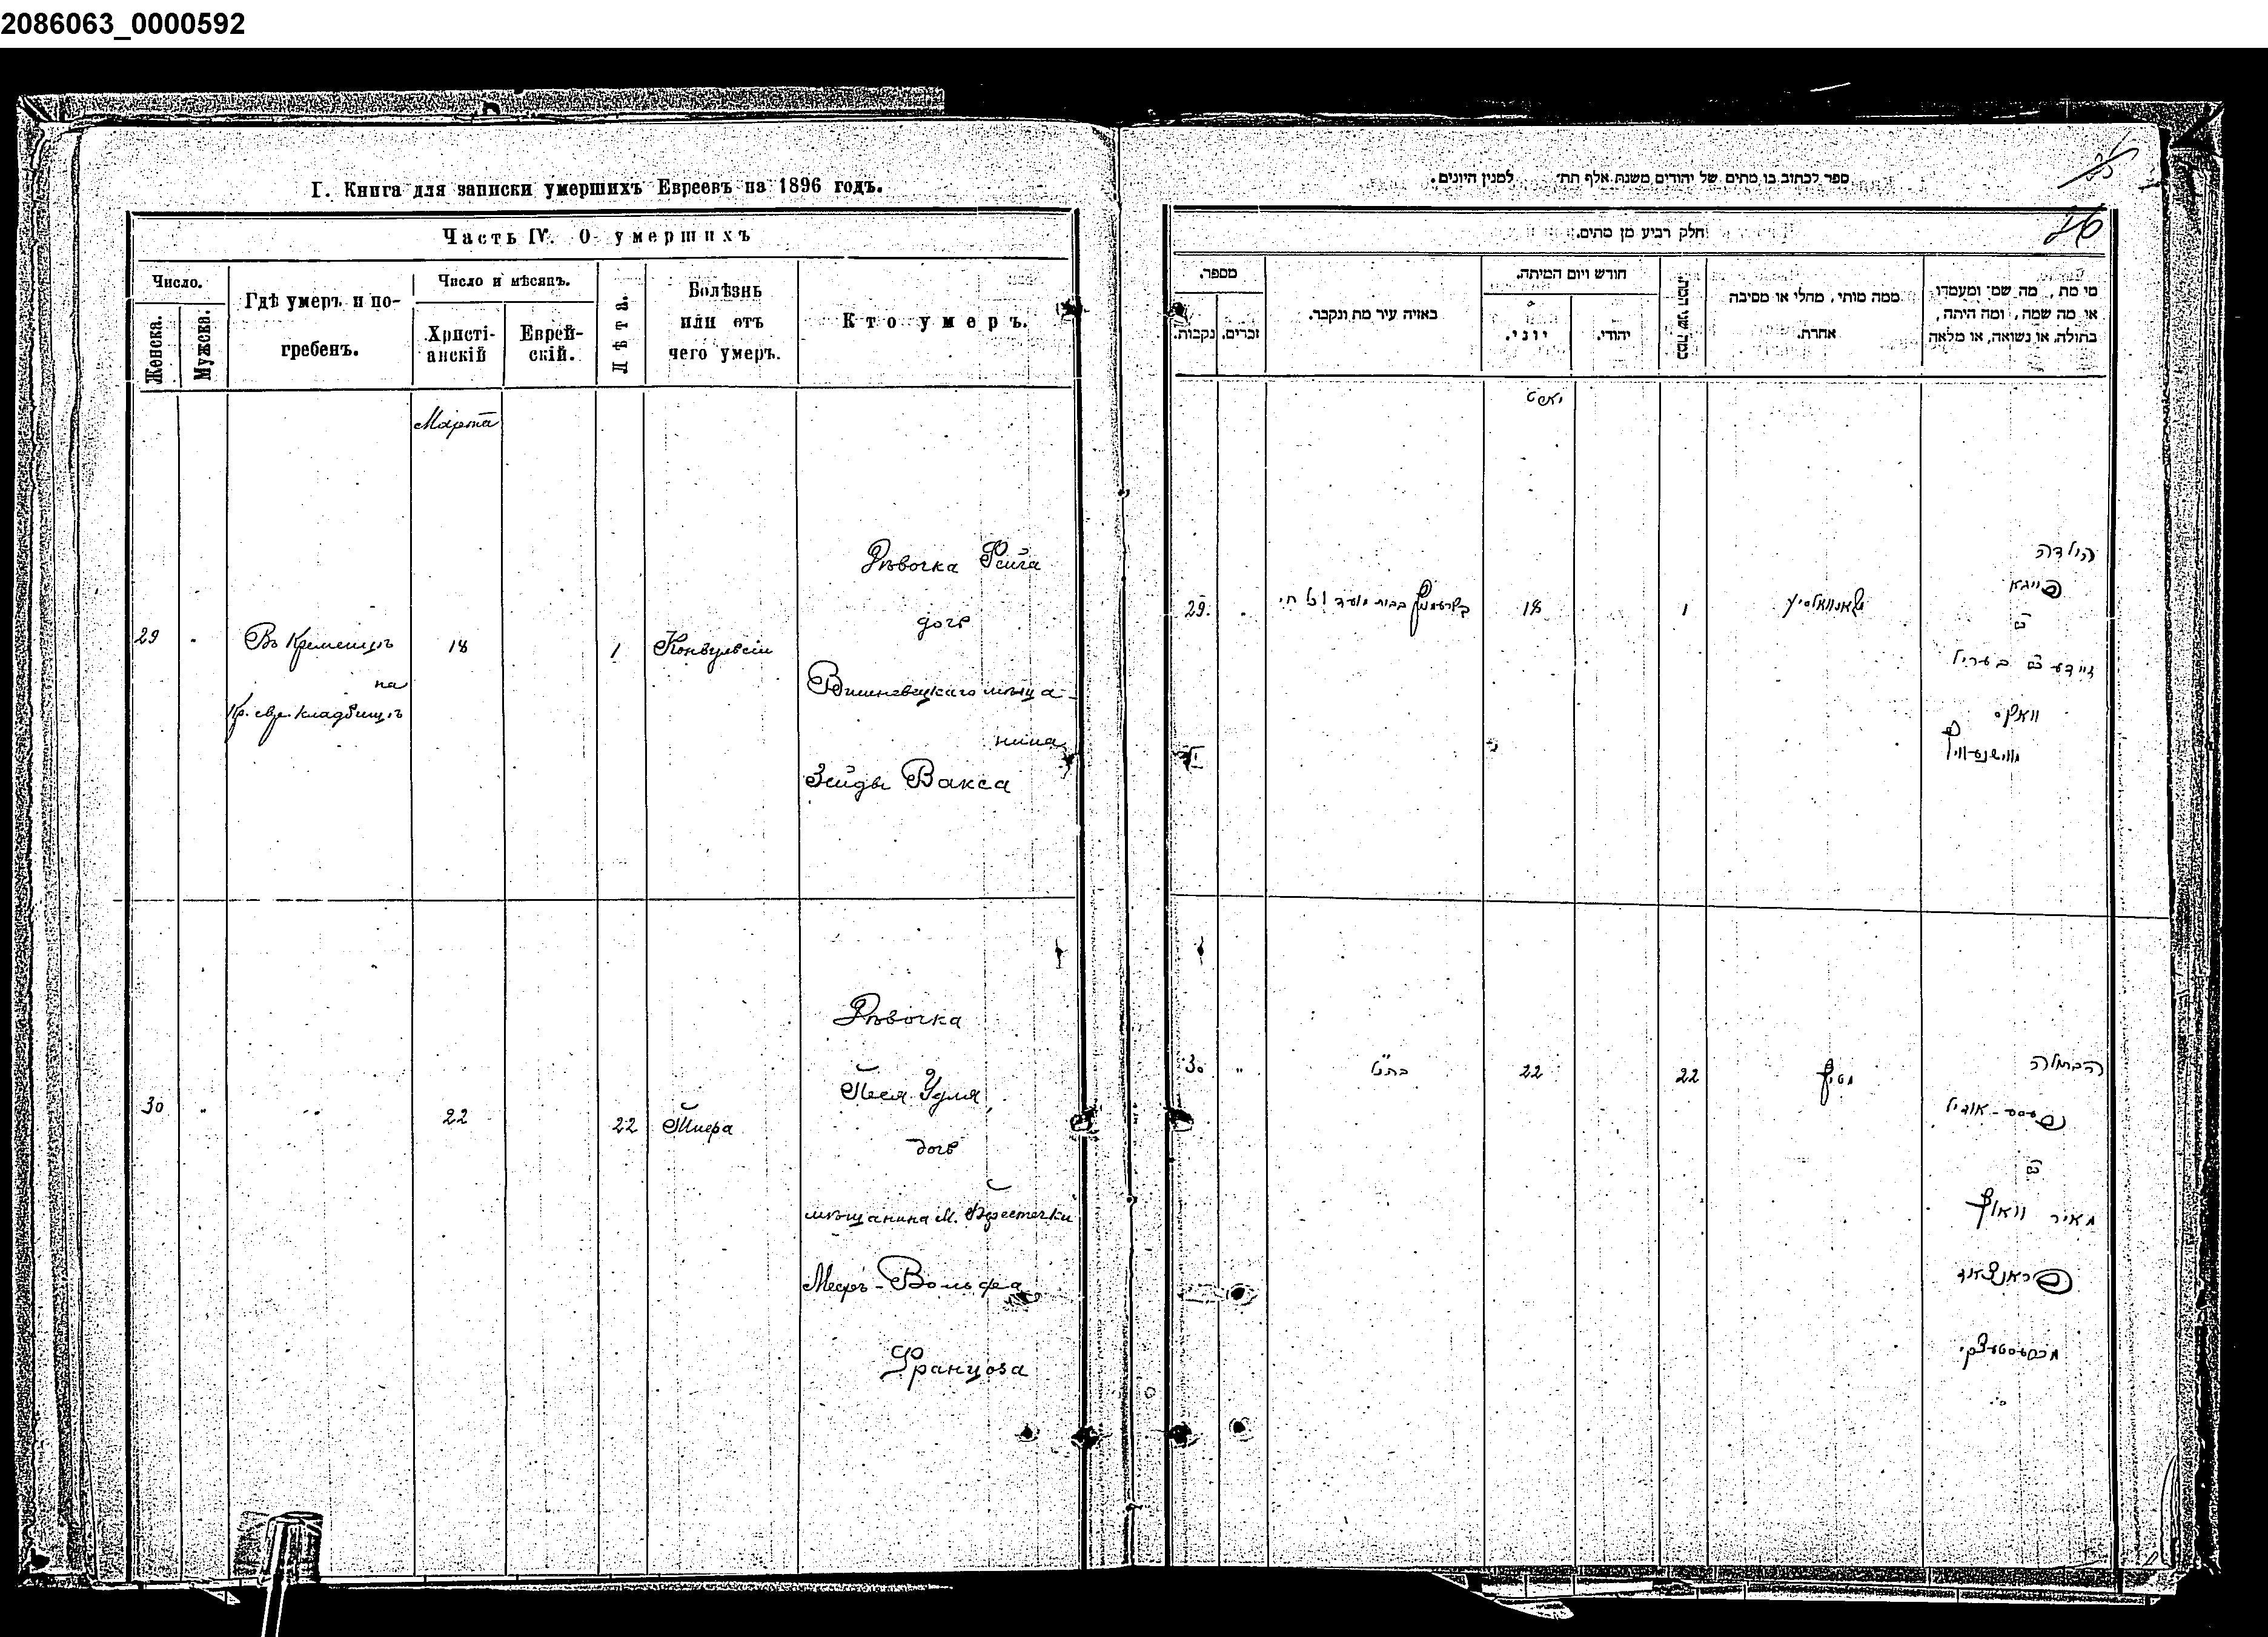 2086063_0000592
I. Книга для записки умершихъ Евреевъ на 1896 годъ.
Часть IV. О умершихъ
Число.
Женска.
Мужска.
Гдѣ умеръ и по-
гребенъ.
Число и мѣсяцъ.
Христі-
анскій
Еврей-
скій.
Лѣта.
Болѣзнь
или отъ
чего умеръ.
Кто умеръ.
Марта
29
Въ Кременцѣ
на
Кр. евр. кладбищѣ
18
1
Конвульсіи
Дѣвочка Фейга
дочь
Вишневецкаго мѣща-
нина
Зейды Вакса
30
22
22
Тифа
Дѣвочка
Песя Удля
дочь
мѣщанина м. Берестечки
Мееръ-Вольфа
Француза
ספר לכתוב בו מתים של יהודים משנת אלף תת׳ למנין היונים.
26
חלק רביע מן מתים.
מספר.
נקבות.
זכרים.
באיזה עיר מת ונקבר.
חודש ויום המיתה.
יוני.
יהודי.
כמה שני המת.
ממה מותו, מחלי או מסיבה
אחרת.
מי מת, מה שמו ומעמדו
או מה שמה, ומה היתה,
בתולה, או נשואה, או מלאה
29.
18
1
קאנוואלסיע
הילדה
פייגא
בת
זיידע
וואקס
30
22
22
הבתולה
פעסס-אודיל
בת
מאיר וואלף
פראנצאז